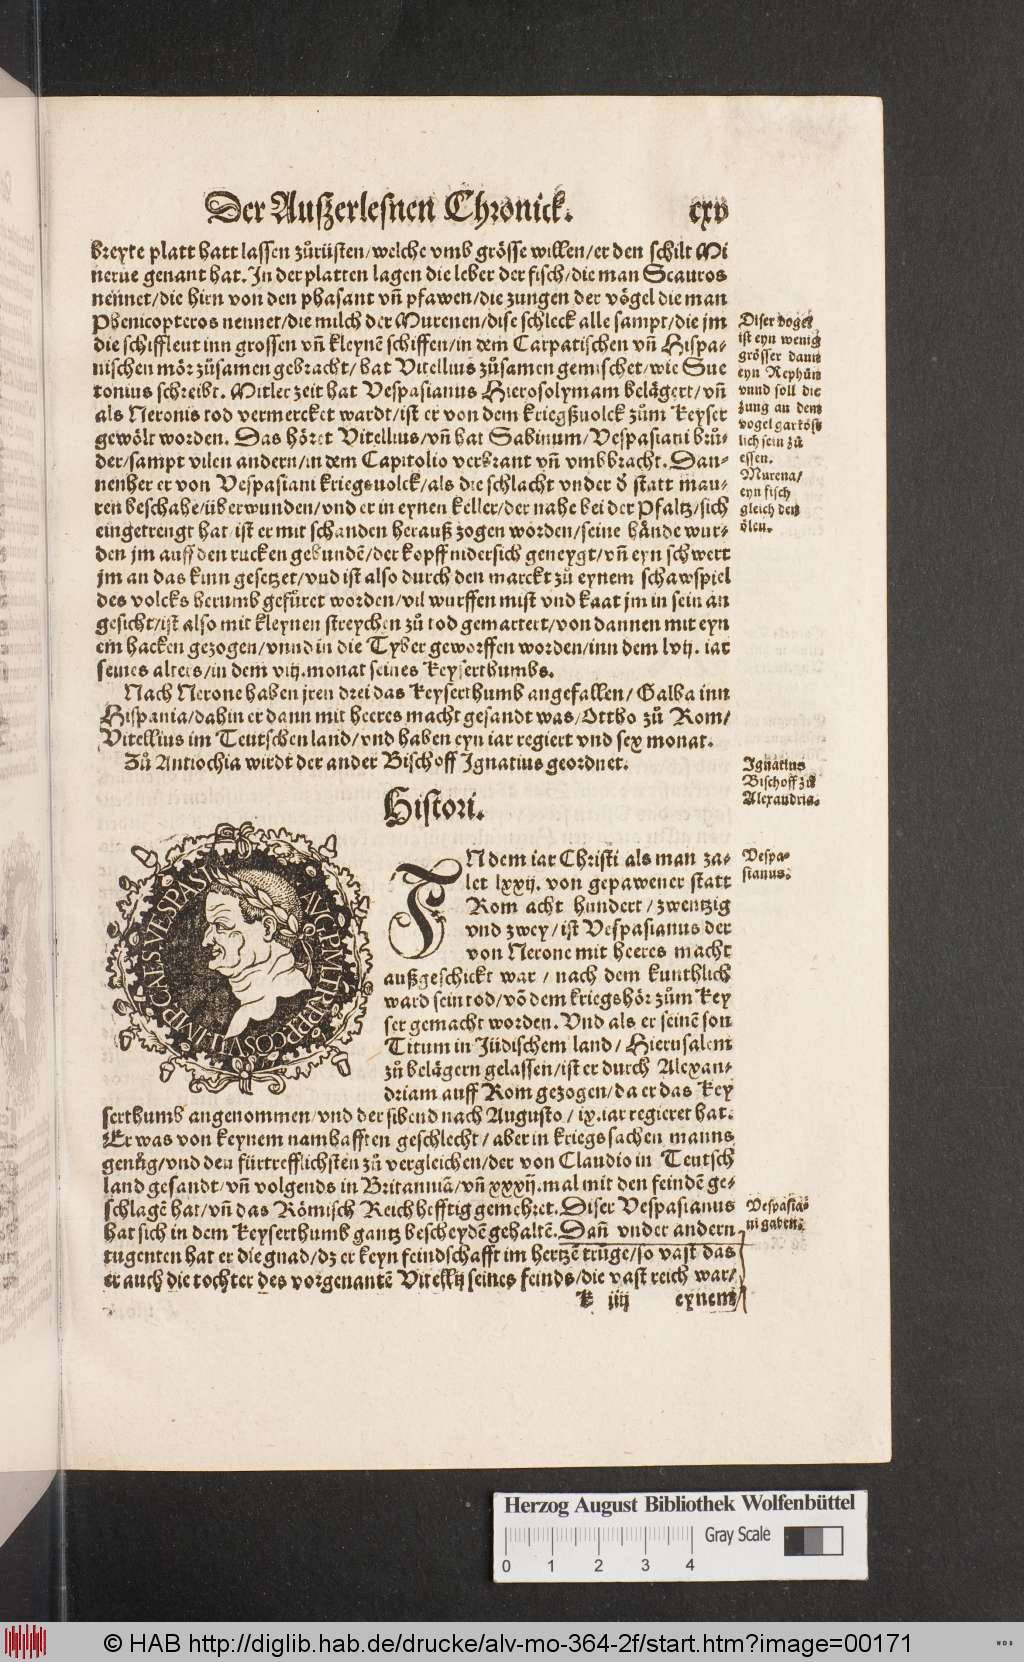 Der Außerlesnen Chronick.
cxv
breyte platt hatt lassen zůrüsten/welche vmb grösse willen/er den schilt Mi
nerue genant hat. In der platten lagen die leber der fisch/die man Scauros
nennet/die hirn von den phasant vñ pfawen/die zungen der vögel die man
Phenicopteros nennet/die milch der Murenen/dise schleck alle sampt/die jm
die schiffleut inn grossen vñ kleynē schiffen/in dem Carpatischen vñ Hispa-
nischen mör zůsamen gebracht/hat Vitellius zůsamen gemischet/wie Sue
tonius schreibt. Mitler zeit hat Vespasianus Hierosolymam belägert/vñ
als Neronis tod vermercket wardt/ist er von dem kriegßuolck zům keyser
gewölt worden. Das höret Vitellius/vñ hat Sabinum/Vespasiani brů-
der/sampt vilen andern/in dem Capitolio verbrant vñ vmbbracht. Dan-
nenher er von Vespasiani kriegsuolck/als die schlacht vnder d̄ statt mau-
ren beschahe/überwunden/vnd er in eynen keller/der nahe bei der Pfaltz/sich
eingetrengt hat/ist er mit schanden herauß zogen worden/seine hände wur-
den jm auff den rucken gebundē/der kopff nidersich geneygt/vñ eyn schwert
jm an das kinn gesetzet/vnd ist also durch den marckt zů eynem schawspiel
des volcks herumb gefůret worden/vil wurffen mist vnd kaat jm in sein an
gesicht/ist also mit kleynen streychen zů tod gemartert/von dannen mit eyn
em hacken gezogen/vnnd in die Tyber geworffen worden/inn dem lvij. iar
seines alters/in dem viij. monat seines keyserthumbs.
Nach Nerone haben jren drei das keyserthumb angefallen/Galba inn
Hispania/dahin er dann mit heeres macht gesandt was/Ottho zů Rom/
Vitellius im Teutschen land/vnd haben eyn iar regiert vnd sex monat.
Zů Antiochia wirdt der ander Bischoff Ignatius geordnet.
Diser vogel
ist eyn wenig
grösser dann
eyn Rephůn
vnnd soll die
zung an dem
vogel gar kóst
lich sein zů
essen.
Murena/
eyn fisch
gleich den
ölen.
Ignatius
Bischoff zů
Alexandria.
Histori.
IMP. CAES. VESPASIAN. AVG. P.M. TR. P. P.P. COS. VIII
IN dem iar Christi als man za-
let lxxij. von gepawener statt
Rom acht hundert/zwentzig
vnd zwey/ist Vespasianus der
von Nerone mit heeres macht
außgeschickt war/nach dem kunthlich
ward sein tod/vō dem kriegshör zům key
ser gemacht worden. Vnd als er seinē son
Titum in Jüdischem land/Hierusalem
zů belägern gelassen/ist er durch Alexan-
driam auff Rom gezogen/da er das key
serthumb angenommen/vnd der sibend nach Augusto/ix. iar regieret hat.
Er was von keynem namhafften geschlecht/aber in kriegssachen manns
genůg/vnd den fürtrefflichsten zů vergleichen/der von Claudio in Teutsch
land gesandt/vñ volgends in Britanniā/vñ xxxij. mal mit den feindē ge-
schlagē hat/vñ das Römisch Reich hefftig gemehret. Diser Vespasianus
hat sich in dem keyserthumb gantz bescheydē gehaltē. Dañ vnder andern
tugenten hat er die gnad/dz er keyn feindschafft im hertzē truge/so vast das
er auch die tochter des vorgenantē Vitellij seines feinds/die vast reich war/
k iiij
eynem
Vespa-
sianus.
Vespasia-
ni gaben.
Herzog August Bibliothek Wolfenbüttel
Gray Scale
0 1 2 3 4
© HAB http://diglib.hab.de/drucke/alv-mo-364-2f/start.htm?image=00171
WDB